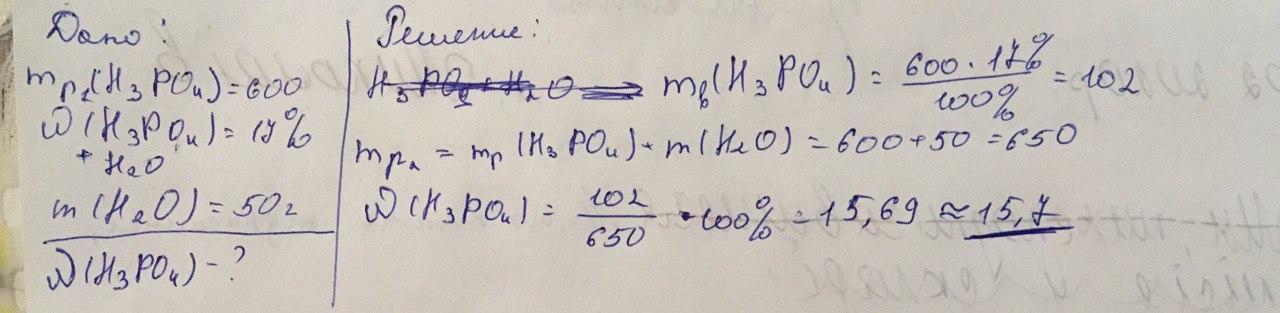 Дано:
m р₁(H₃PO₄)=600
ω(H₃PO₄)=17%
+ H₂O
m(H₂O)=50г
ω(H₃PO₄)-?
Решение:
H₃PO₄+H₂O ⟹ mв(H₃PO₄) = 600·17%/100% = 102
mр₂ = mр(H₃PO₄)+m(H₂O)=600+50=650
ω(H₃PO₄) = 102/650 · 100% = 15,69 ≈ 15,7